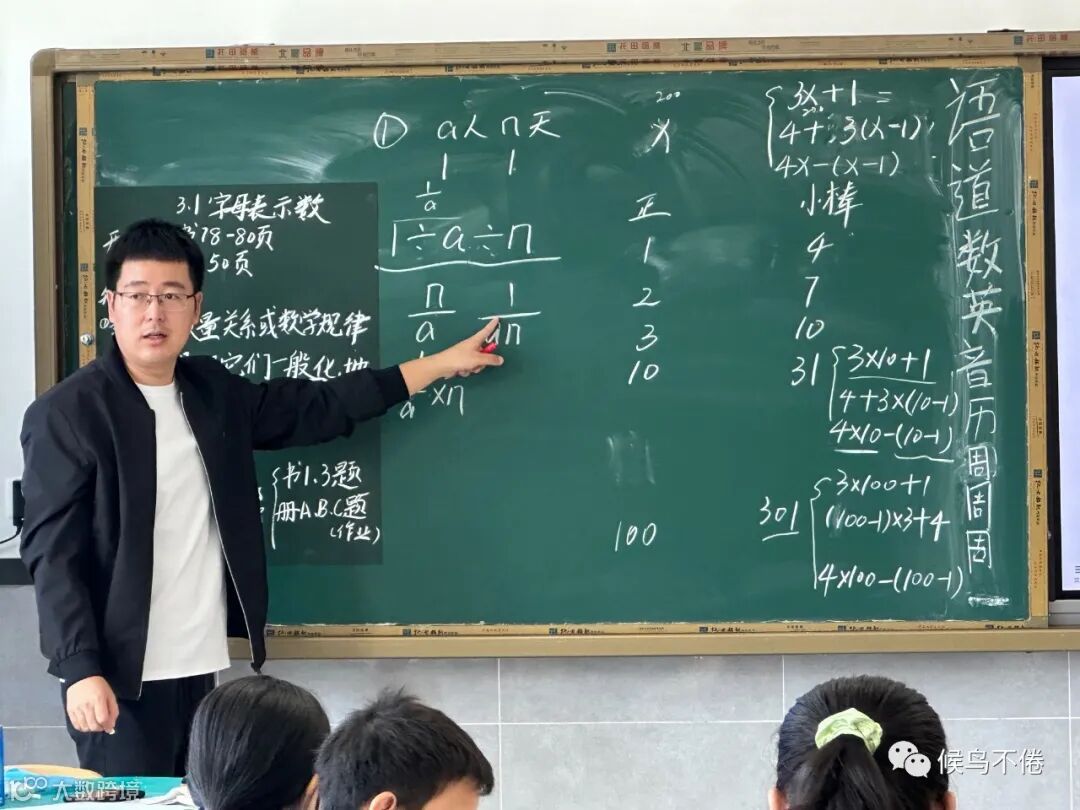 ① a人 n天
1 1
1/a
1÷a÷n
n/a 1/an
×n
3.1 字母表示数
78-80页
50页
量关系或数学规律
它们一般化,地
书1.3题
册A.B.C题
(作业)
200
x
正
1
2
3
10
100
3x+1=
4+3(x-1)
4x-(x-1)
小棒
4
7
10
31
3×10+1
4+3×(10-1)
4×10-(10-1)
301
3×100+1
(100-1)×3+4
4×100-(100-1)
语道数英音历周周周
大数跨境
候鸟不倦